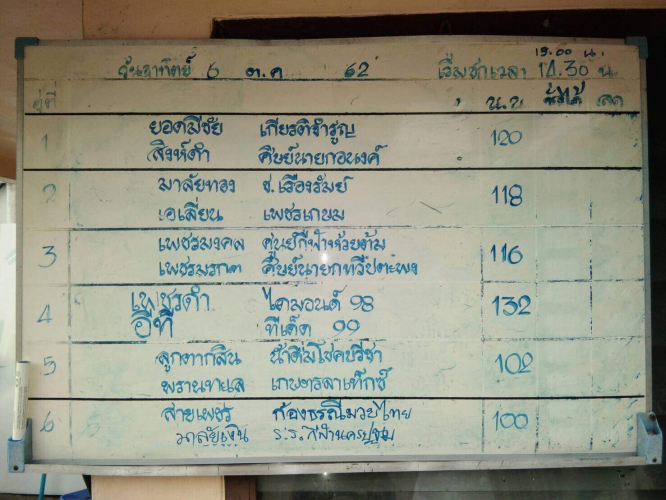 15.00 น.
วันอาทิตย์ 6 ต.ค 62 เริ่มชกเวลา 14.30 น
คู่ที่ น.น ชั่งได้ ลด
1 ยอดมีชัย เกียรติจำรูญ 120
สิงห์ดำ ศิษย์นายกอนงค์
2 มาลัยทอง ช.เรืองรัมย์ 118
เอเลี่ยน เพชรเกษม
3 เพชรมงคล ศูนย์กีฬาห้วยต้ม 116
เพชรมรกต ศิษย์นายกทวีปตะพง
4 เพชรดำ ไดมอนด์ 98 132
อีที ทีเด็ด 99
5 ลูกตากสิน น้ำดื่มโชคปรีชา 102
พรานทะเล เกษตรลาเท็กซ์
6 สายเพชร ก้องธรณีมวยไทย 100
มาลัยเงิน ร.ร.กีฬานครปฐม